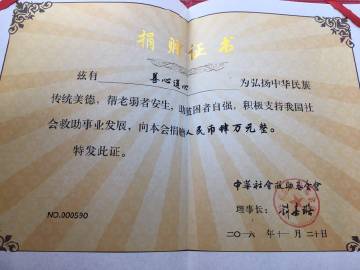 捐赠证书
兹有 善心送心 为弘扬中华民族
传统美德，帮老弱者安生，助贫困者自强，积极支持我国社
会救助事业发展，向本会捐赠人民币肆万元整。
特发此证。
中华社会救助基金会
理事长：
NO.000590
二〇一六年十一月二十日